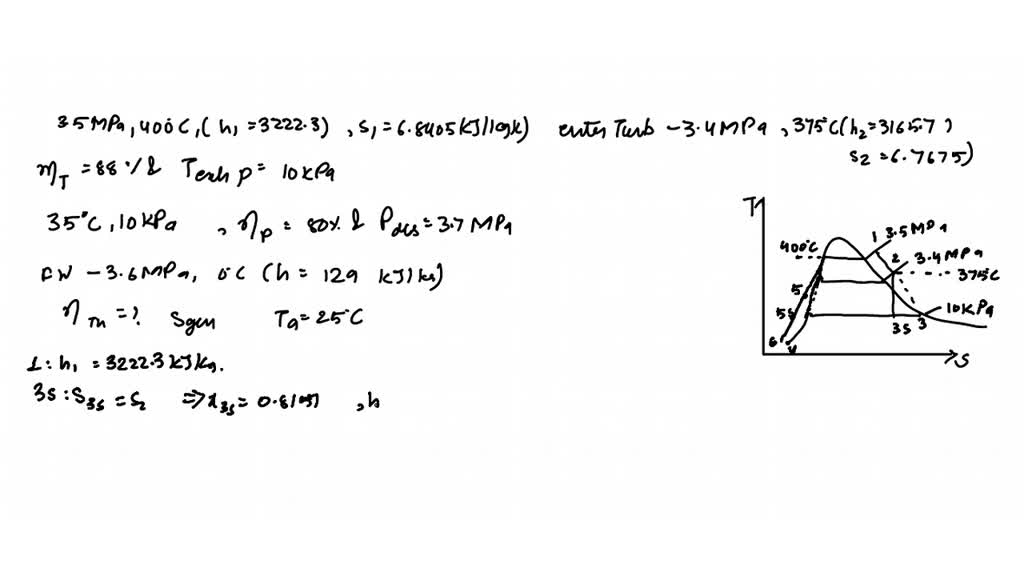 35MPa, 400°C, (h₁ = 3222.3) , S₁ = 6.8405 kJ/kgk) enter Turb - 3.4MPa, 375°C (h₂ = 3165.7)
S₂ = 6.7675)
η_T = 88% & p = 10kPa
35°C, 10kPa , η_p = 80% & = 3.7 MPa
- 3.6MPa, 0°C (h = 129 kJ/kg)
η_Th = ? Sgen Ta = 25°C
1: h₁ = 3222.3 kJ/kg.
3S: S₃s = S₂ ⇒ x₃s = , h
T
400°C
1
3.5MPa
2
3.4MPa
375°C
5
5s
10kPa
3s
3
6
4
S